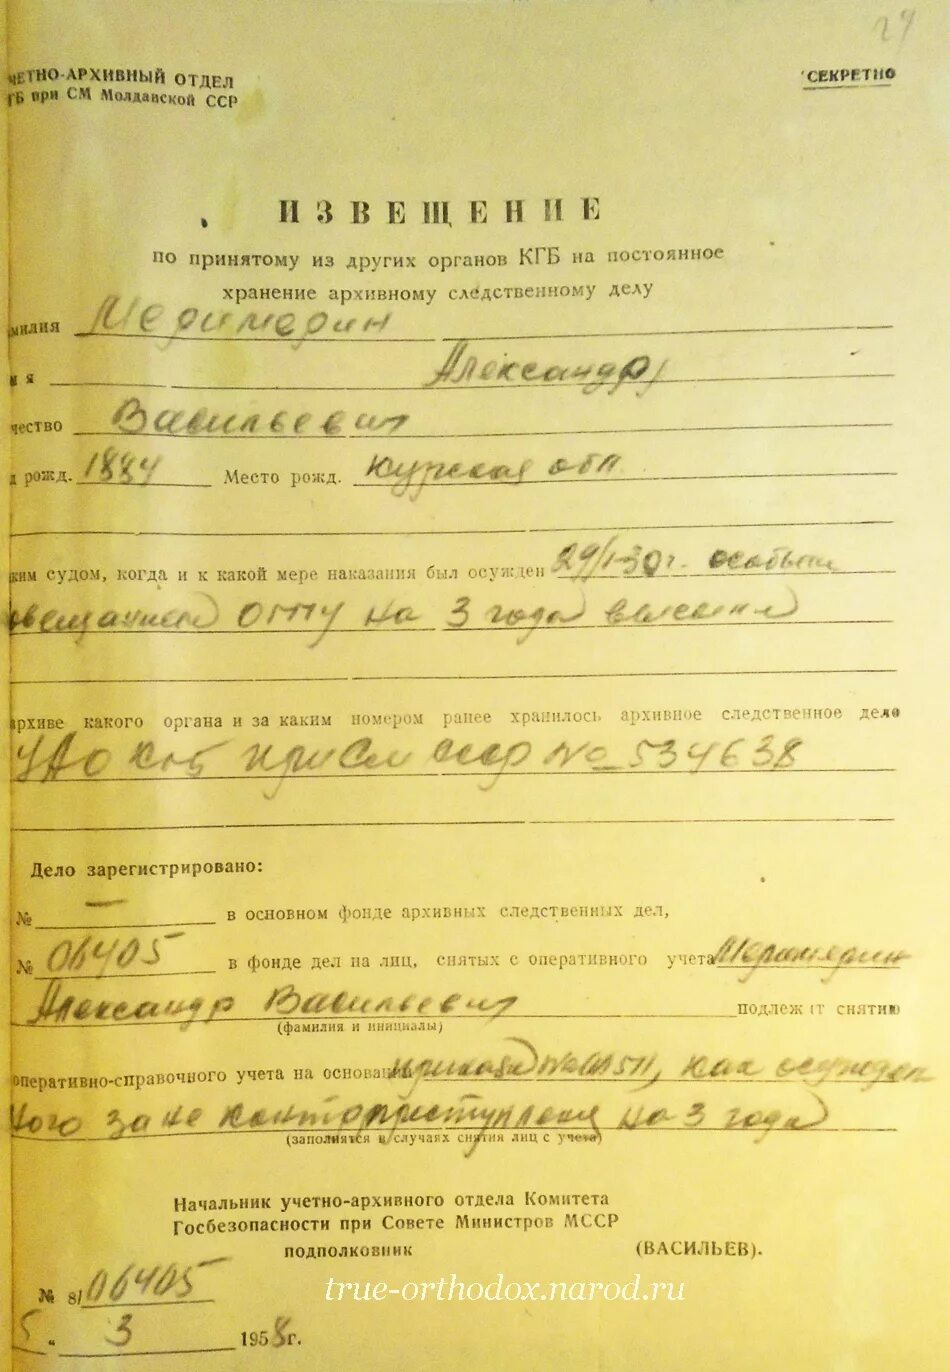 29
ЧЕТНО-АРХИВНЫЙ ОТДЕЛ
СЕКРЕТНО
ГБ при СМ Молдавской ССР
ИЗВЕЩЕНИЕ
по принятому из других органов КГБ на постоянное
хранение архивному следственному делу
амилия
мя Александр
чество Васильевич
д рожд. 1884 Место рожд. Курская обл
ким судом, когда и к какой мере наказания был осужден 29/I-30г. особым
овещанием ОГПУ на 3 года высылки
архиве какого органа и за каким номером ранее хранилось архивное следственное дело
УАО КГБ при См СССР № 534638
Дело зарегистрировано:
№ — в основном фонде архивных следственных дел,
№ 06405 в фонде дел на лиц, снятых с оперативного учета
Александр Васильевич подлежит снятию
(фамилия и инициалы)
оперативно-справочного учета на основании приказа № 00511, как осужден
ного за не контрпреступления на 3 года
(заполняется в случаях снятия лиц с учета)
Начальник учетно-архивного отдела Комитета
Госбезопасности при Совете Министров МССР
подполковник (ВАСИЛЬЕВ).
№ 8/06405
true-orthodox.narod.ru
5 „ 3 1958г.